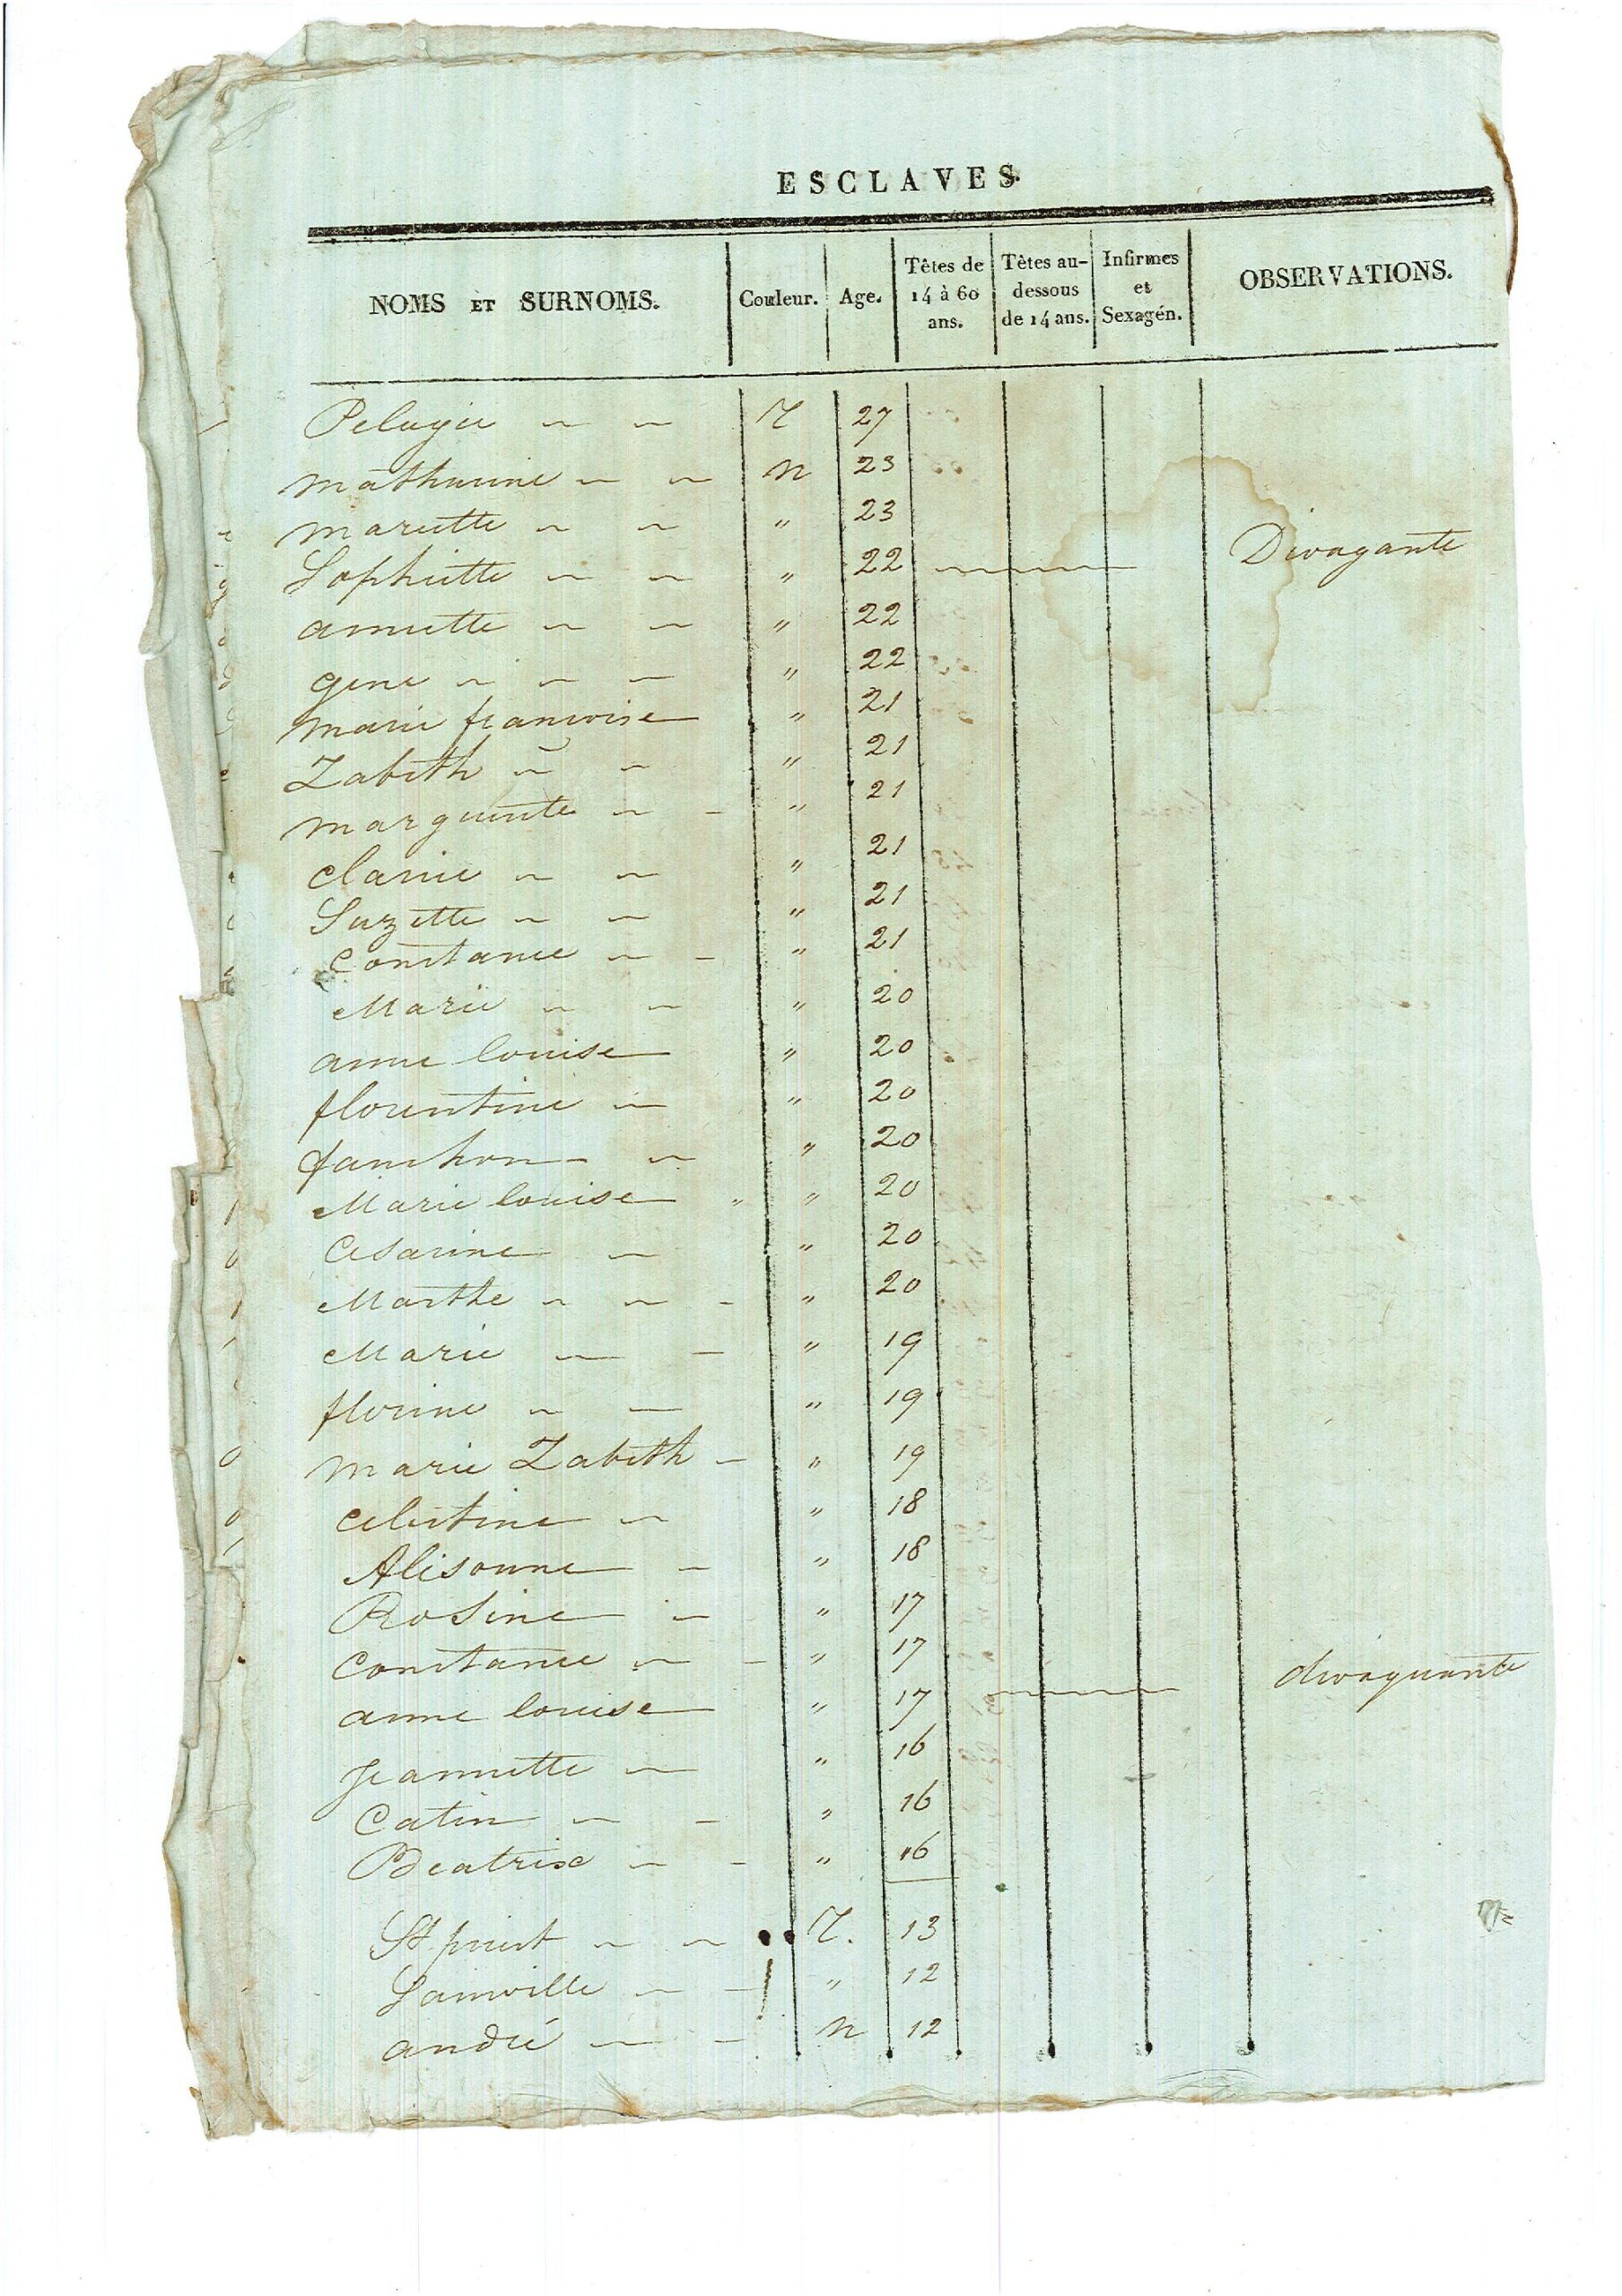 ESCLAVES.
NOMS ET SURNOMS. Couleur. Age. Têtes de 14 à 60 ans. Têtes au-dessous de 14 ans. Infirmes et Sexagén. OBSERVATIONS.
Pelagie 27
mathurine n 23
mariette " 23
Sophiette " 22 Divagante
annette " 22
gene " 22
marie françoise " 21
Zabeth " 21
marguerite " 21
clarice " 21
Suzette " 21
Constance " 21
Marie " 20
anne louise " 20
florentine " 20
fanchon " 20
Marie louise " " 20
Cesarine " 20
Marthe " 20
Marie " 19
florine " 19
marie Zabeth " 19
Celestine " 18
Alisonne " 18
Rosine " 17
Constance " 17
anne louise " 17 divaguante
Jeannette " 16
Catin " 16
Beatrix " 16
St priest 13
Sainville " 12
andré n 12